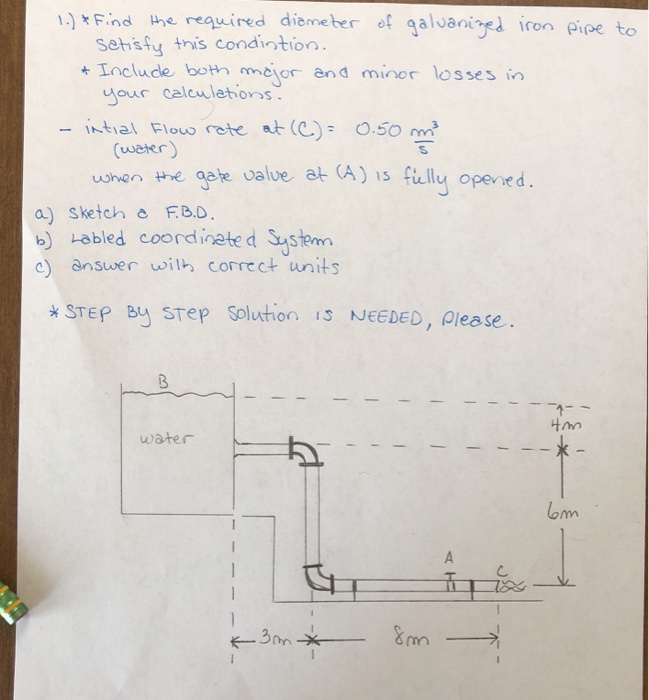 1.) * Find the required diameter of galvanized iron pipe to
satisfy this condintion.
* Include both major and minor losses in
your calculations.
- intial Flow rate at (C) = 0.50 m³/s
(water)
when the gate value at (A) is fully opened.
a) sketch a F.B.D.
b) Labled coordinated System
c) answer with correct units
* STEP By STEP Solution is NEEDED, please.
B
water
4m
6m
A
C
3m
8m